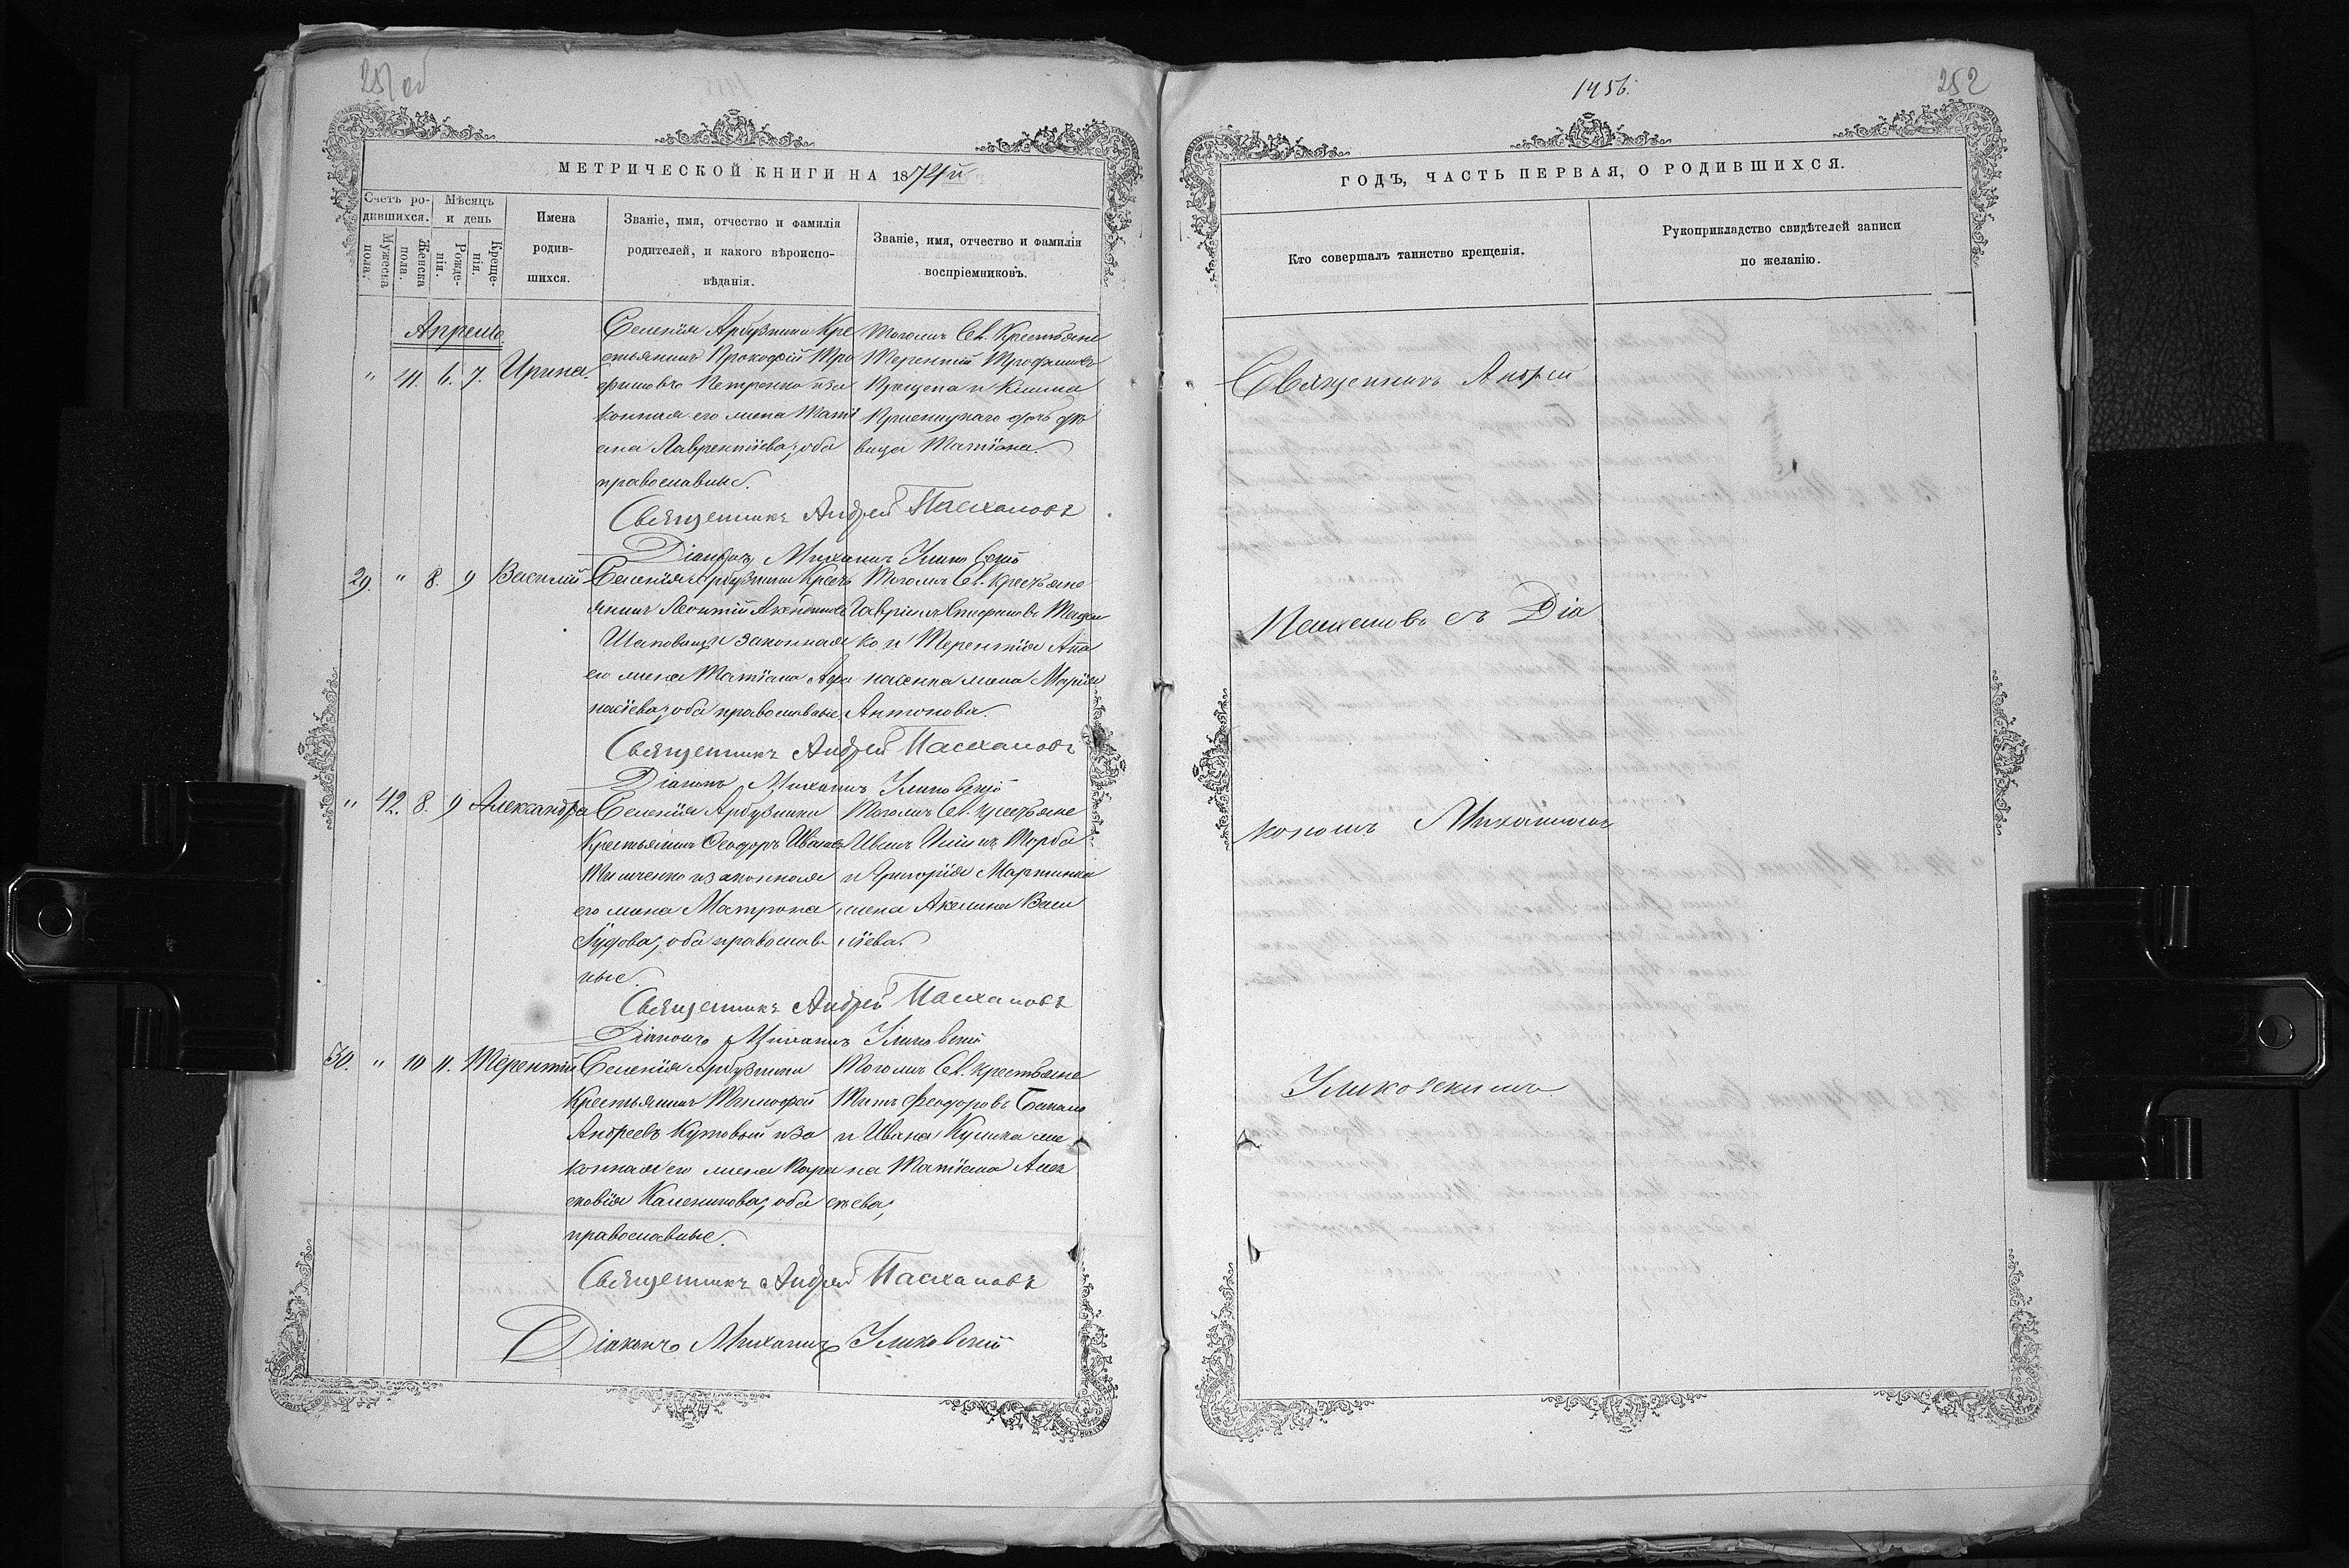 251 об
МЕТРИЧЕСКОЙ КНИГИ НА 1874й
Счетъ ро-
дившихся.
Мѣсяцъ
и день
Мужеска
пола.
Женска
пола.
Рожде-
нія.
Креще-
нія.
Имена
родив-
шихся.
Званіе, имя, отчество и фамилія
родителей, и какого вѣроиспо-
вѣданія.
Званіе, имя, отчество и фамилія
воспріемниковъ.
Апрель.
" 41. 6. 7. Ирина.
Селенія Арбузинки Кре
стьянинъ Прокофій Тро
фимовъ Петренко и за
конная его жена Тати
ана Лаврентіева, оба
православные.
Тогожъ Сел. Крестьяне
Терентій Трофимовъ
вица Татіана.
Священникъ Андрей Пасхаловъ
Діаконъ Михаилъ Уликовскій
29. " 8. 9 Василій
Селенія Арбузинки Крест
янинъ Леонтій
и законная
его жена Татіана Афа
насіева, оба православные
Тогожъ Сел. крестьяне
Гавріилъ Стефановъ
ко и Терентія Апа
насенка жена Марія
Антонова.
Священникъ Андрей Пасхаловъ
Діаконъ Михаилъ Уликовскій
" 42. 8. 9 Александра
Селенія Арбузинки
Крестьянинъ Ѳеодоръ Ивановъ
Тимченко и законная
его жена Матрона
оба православ
ные.
Тогожъ Сел. крестьяне
Иванъ
и Григорія Мартинка
жена Акелина Васи
ліева.
Священникъ Андрей Пасхаловъ
Діаконъ Михаилъ Уликовскій
30. " 10 11. Терентій
Селенія Арбузинки
Крестьянинъ Тимофей
Андреевъ Кутовый и за
конная его жена Пара
сковія Каленикова, оба
православные.
Тогожъ Сел. крестьяне
Титъ Феодоровъ
и Ивана Кулика же
на Татіана Алек
сеева,
Священникъ Андрей Пасхаловъ
Діаконъ Михаилъ Уликовскій
1456.
252
ГОДЪ, ЧАСТЬ ПЕРВАЯ, О РОДИВШИХСЯ.
Кто совершалъ таинство крещенія.
Рукоприкладство свидѣтелей записи
по желанію.
Священникъ Андрей
Пасхаловъ съ Діа
кономъ Михаиломъ
Уликовскимъ